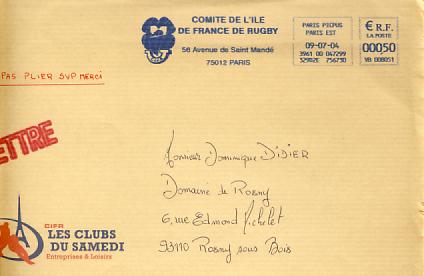 COMITE DE L'ILE
DE FRANCE DE RUGBY
56 Avenue de Saint Mandé
75012 PARIS
PARIS PICPUS
PARIS EST
09-07-04
3961 00 047299
32902E 756730
€ R.F.
LA POSTE
00050
VB 008051
PAS PLIER SVP MERCI
ETTRE
Monsieur Dominique DIDIER
Domaine de Rosny
6, rue Edmond Michelet
93110 Rosny sous Bois
CIFR
LES CLUBS
DU SAMEDI
Entreprises & Loisirs